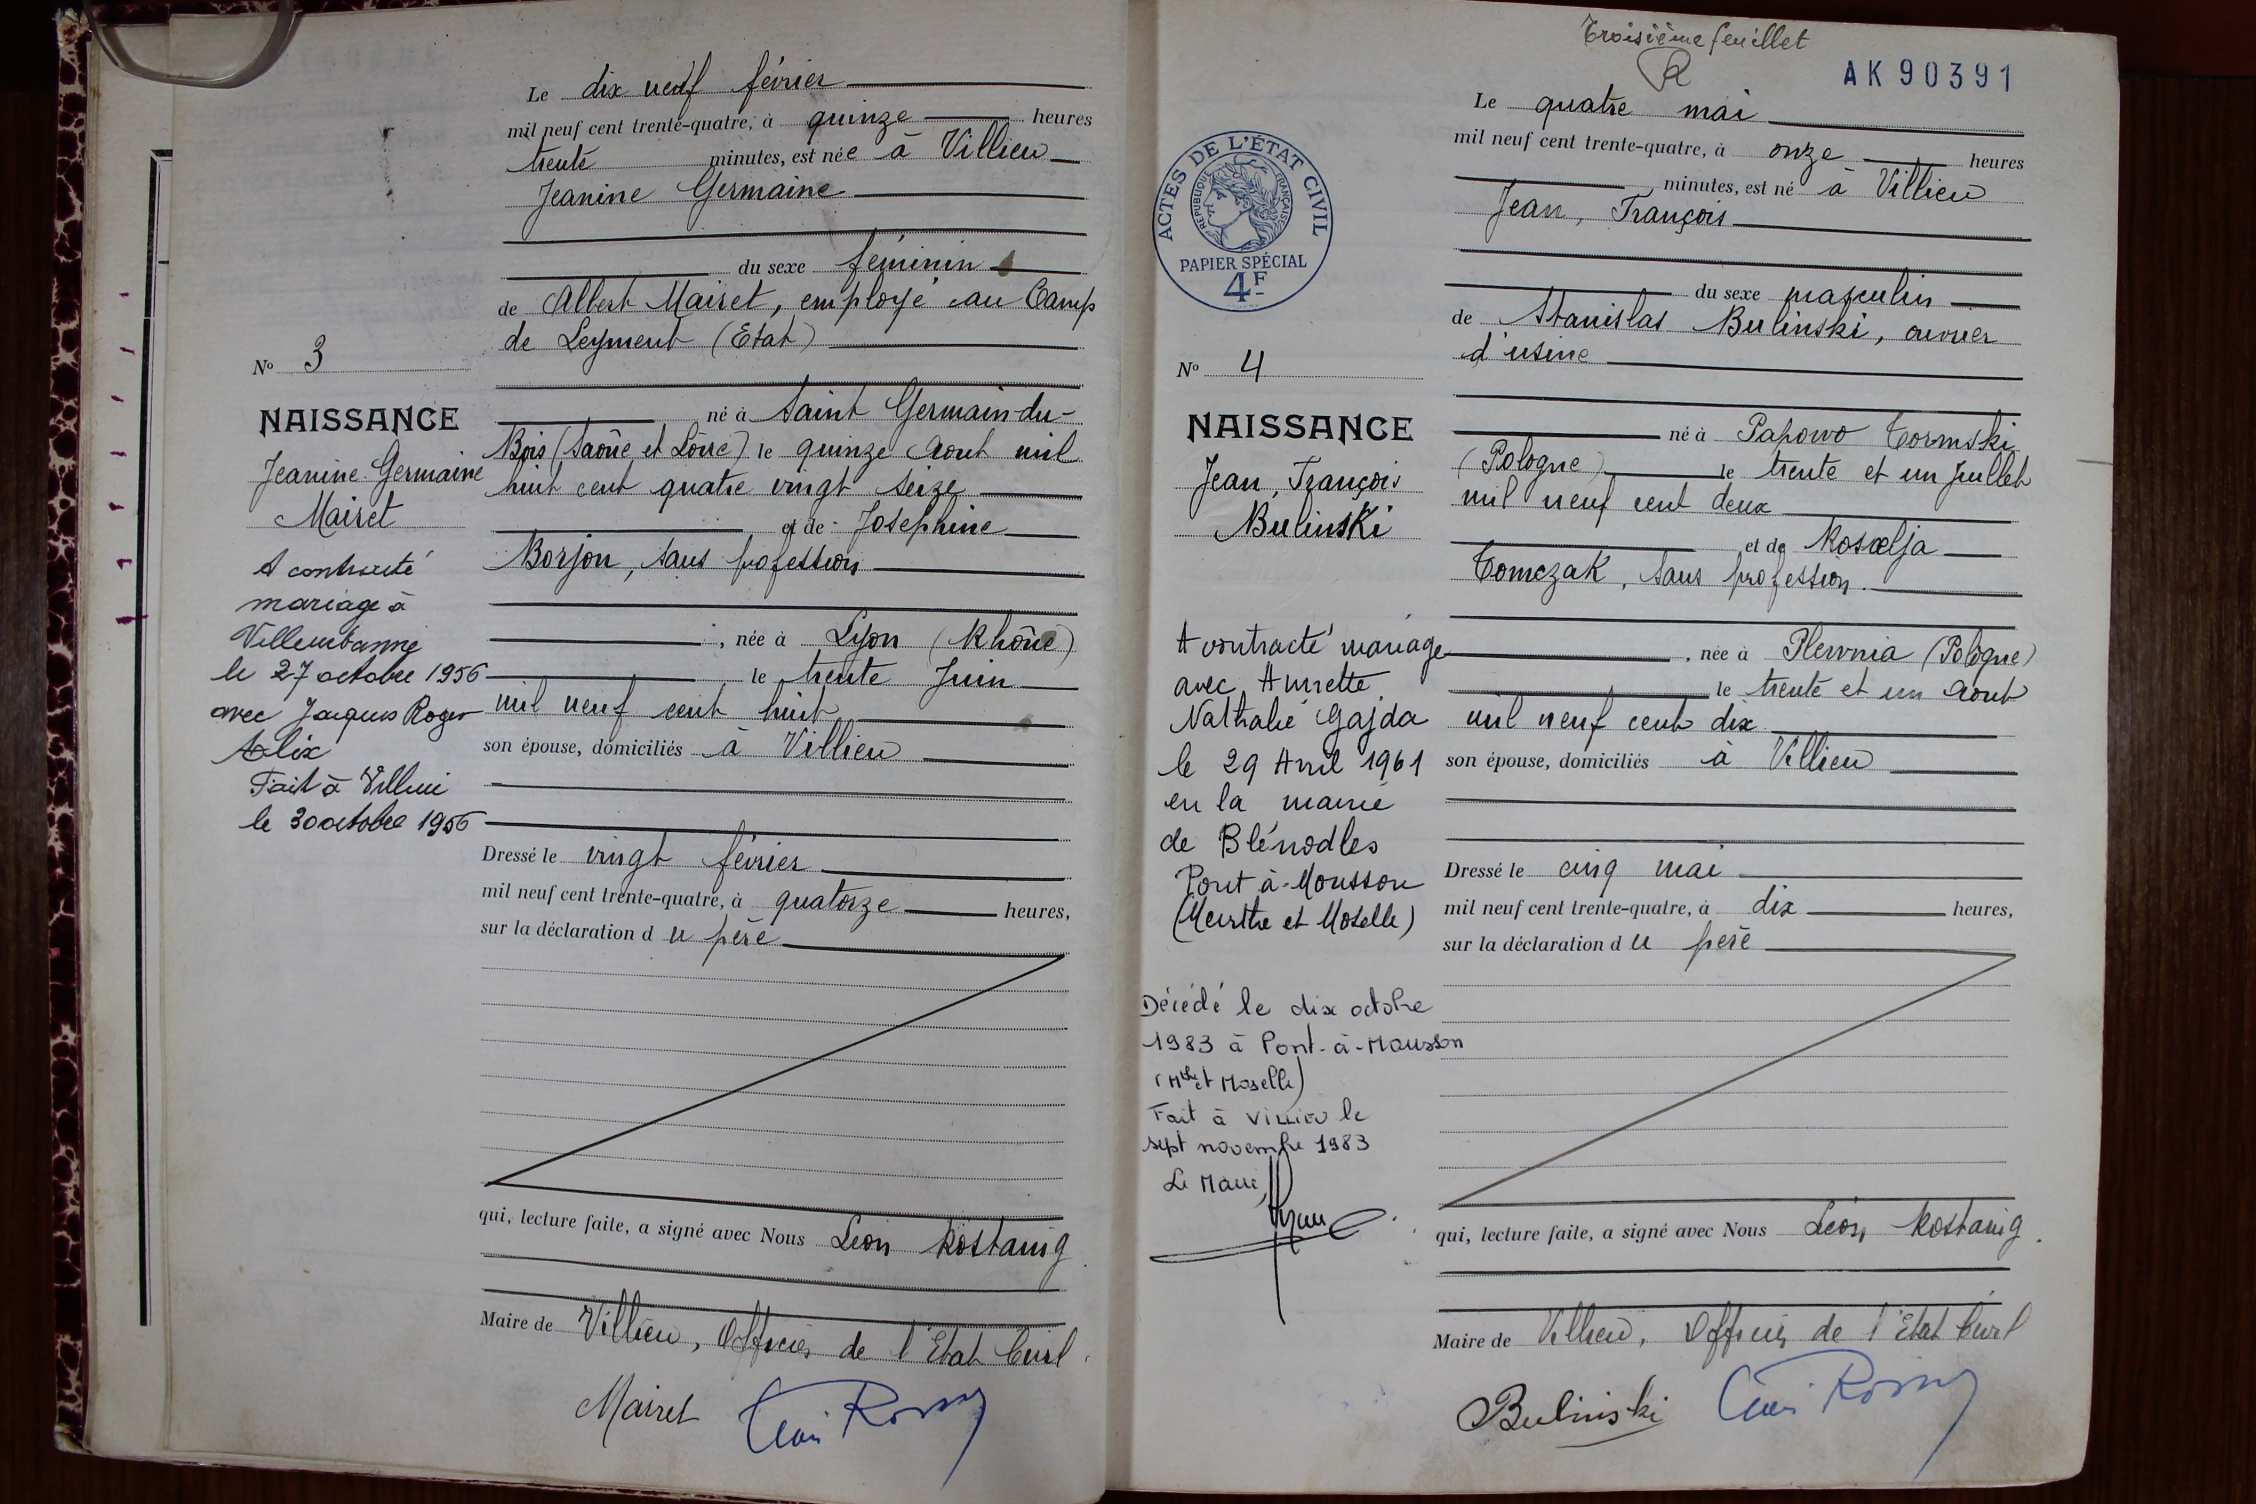 Le dix neuf février
mil neuf cent trente-quatre, à quinze heures
trente minutes, est née à Villieu
Jeanine Germaine
du sexe féminin
de Albert Mairet, employé au Camp
de Leyment (Etat)
No 3
né à Saint Germain-du-
Bois (Saône et Loire) le quinze Aout mil
huit cent quatre vingt seize
et de Josephine
Borjon, sans profession
née à Lyon (Rhône)
le trente Juin
mil neuf cent huit
son épouse, domiciliés à Villieu
Dressé le vingt février
mil neuf cent trente-quatre, à quatorze heures,
sur la déclaration du père
qui, lecture faite, a signé avec Nous Léon Rostaing
Maire de Villieu, Officier de l'Etat Civil.
Mairet
NAISSANCE
Jeanine Germaine
Mairet
A contracté
mariage à
Villeurbanne
le 27 octobre 1956
avec Jacques Roger
Alix
Fait à Villieu
le 30 octobre 1956
Troisième feuillet
AK90391
ACTES DE L'ÉTAT CIVIL
RÉPUBLIQUE FRANÇAISE
PAPIER SPÉCIAL
4F
Le quatre mai
mil neuf cent trente-quatre, à onze heures
minutes, est né à Villieu
Jean, François
du sexe masculin
de Stanislas Bulinski, ouvrier
d'usine
No 4
né à Papowo Tormski
(Pologne) le trente et un Juillet
mil neuf cent deux
et de
Tomczak, sans profession.
née à Plewnia (Pologne)
le trente et un Aout
mil neuf cent dix
son épouse, domiciliés à Villieu
Dressé le cinq mai
mil neuf cent trente-quatre, à dix heures,
sur la déclaration du père
qui, lecture faite, a signé avec Nous Léon Rostaing.
Maire de Villieu, Officier de l'Etat Civil
Bulinski
NAISSANCE
Jean, François
Bulinski
A contracté mariage
avec
Nathalie Gajda
le 29 Avril 1961
en la mairie
de Blénodles
Pont-à-Mousson
(Meurthe et Moselle)
Décédé le dix octobre
1983 à Pont-à-Mousson
(Mthe et Moselle)
Fait à Villieu le
sept novembre 1983
Le Maire,